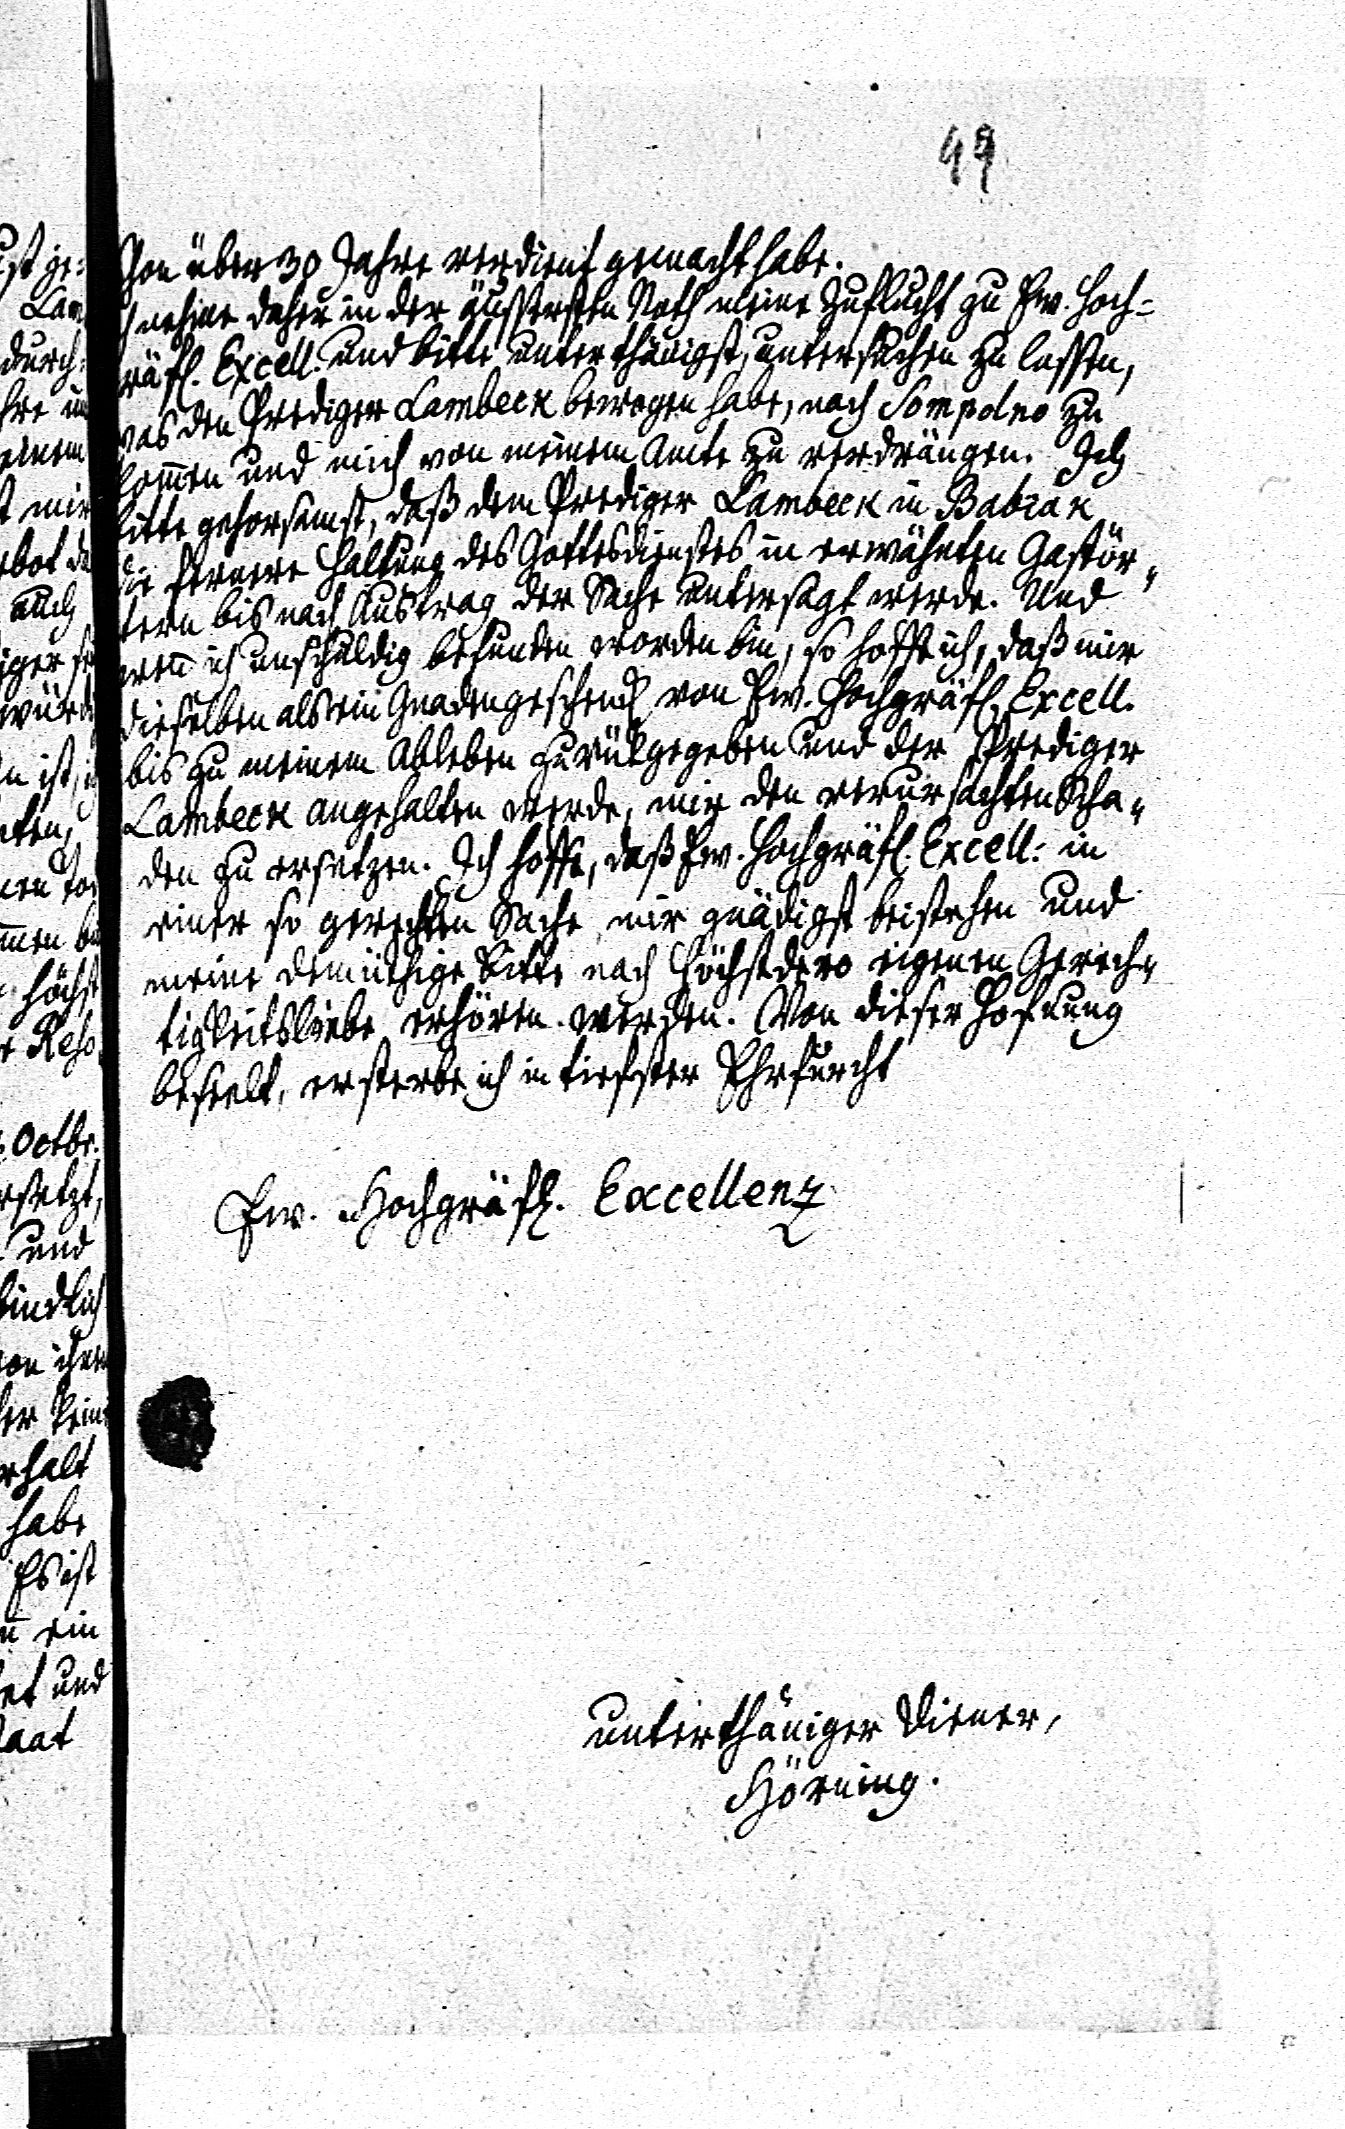 49
schon über 30 Jahre verdient gemacht habe.
Ich nehme daher in der äussersten Noth meine Zuflucht zu Ew. Hoch-
gräfl. Excell. und bitte unterthänigst, untersuchen zu lassen,
was den Prediger Lambeck bewogen habe, nach Sompolno zu
kom̄en und mich von meinem Amte zu verdrängen. Ich
bitte gehorsamst, daß dem Prediger Lambeck in Babiak
die fernere Haltung des Gottesdienstes in erwähnten Gastör„
tern bis nach Austrag der Sache untersagt werde. Und
wen̄ ich unschuldig befunden worden bin, so hoffe ich, daß mir
dieselben als ein Gnadengeschenck von Ew. Hochgräfl. Excell.
bis zu meinem Ableben zurükgegeben und der Prediger
Lambeck angehalten werde, mir den verursachten Scha„
den zu ersetzen. Ich hoffe, daß Ew. Hochgräfl. Excell: in
einer so gerechten Sache mir gnädigst beistehen und
meine demüthige Bitte nach Höchstdero eigenen Gerech„
tigkeitsliebe erhören werden. Von dieser Hofnung
beseelt, ersterbe ich in tiefster Ehrfurcht
Ew. Hochgräfl. Excellenz
unterthäniger Diener,
Hörning.
ust ge-
Lam
durch-
ihre
einem
st mir
auch
würd
n ist,
höchst
Reso
Octbr.
ersetzt,
und
bindlich
von ihrem
der kein
erhalt
habe
Es ist
ein
et und